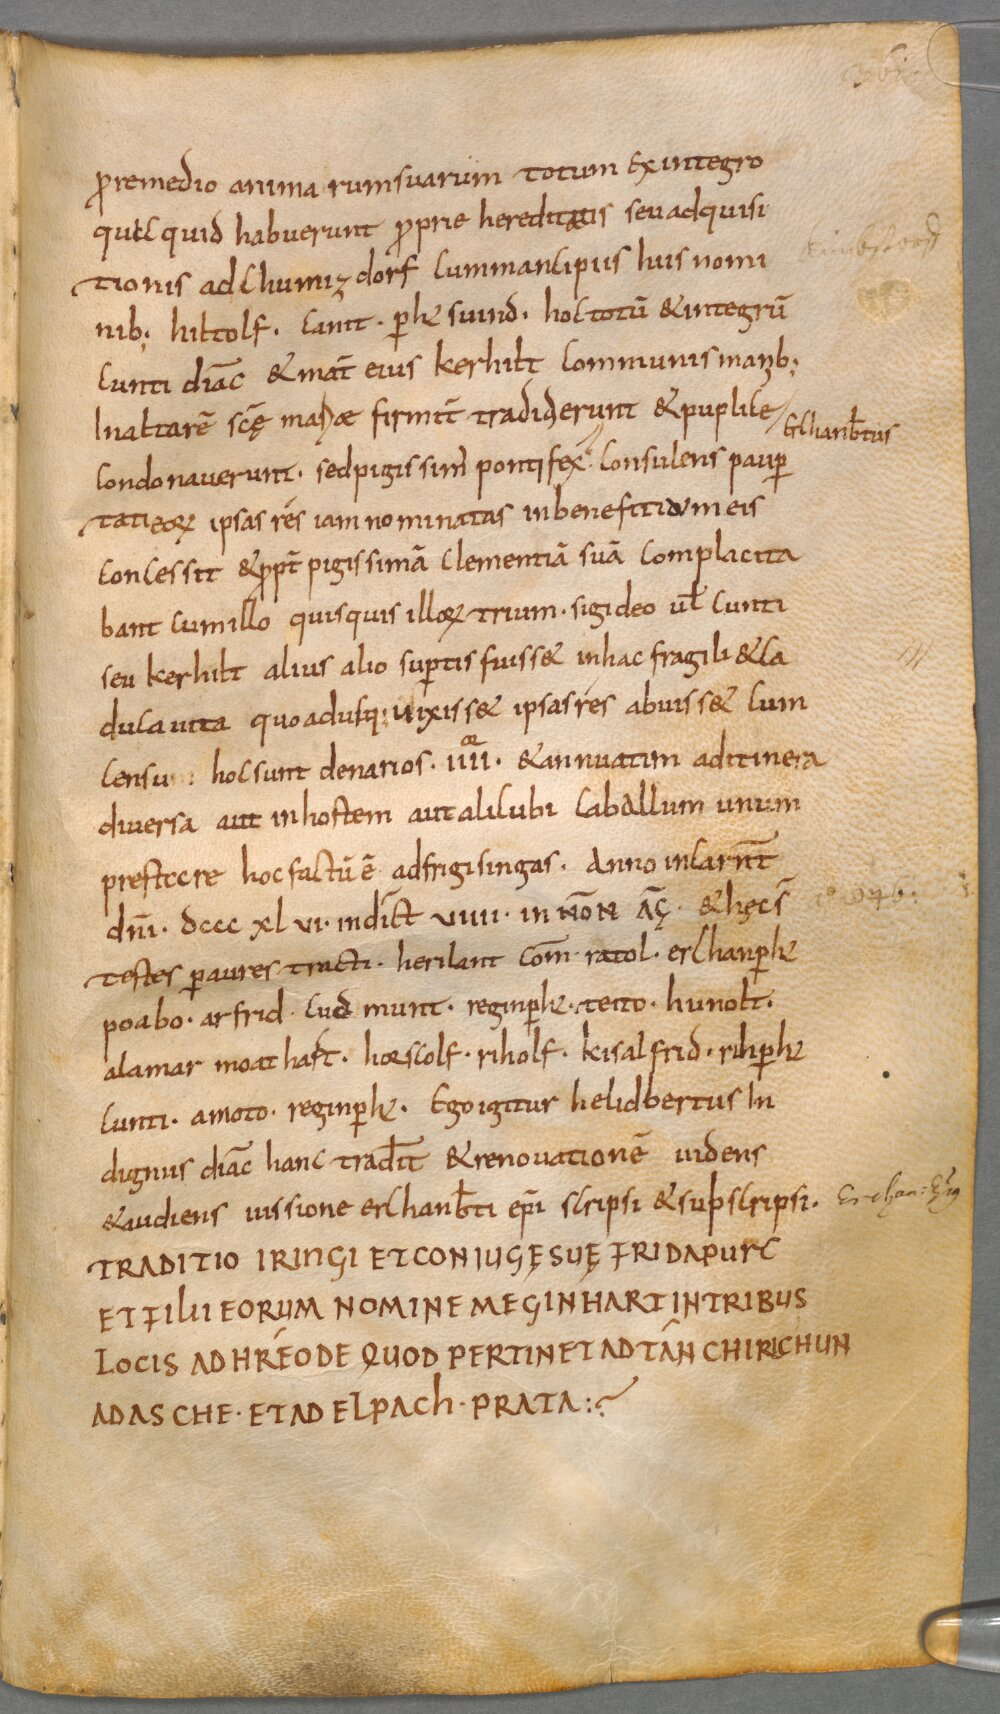 ꝓremedio animarumsuarum totum Exintegro
quicquid habuerunt ꝓprie hereditatis seuadquisi
tionis adchumizdorf cummancipiis huisnomi
nib; hiltolf. cant. ꝑhꝫ suind. hoctotū &integrū
cunti diac̄ &mat̄ eius kerhilt communismanb;
Inaltarē sc̄ę mariae firmit̄ tradiderunt &puplice
condonauerunt. sedpigissim' pontifex consulens pauꝑ
erchanb̄tus
tatieoꝝ ipsas res iamnominatas inbenefitium eis
concessit &ꝓpt̄ pigissimā clementiā suā complacita
bant cumillo quisquis illoꝝ trium. sigideo ul̄ cunti
seu kerhilt alius alio suꝑtisfuiss& inhac fragili &ca
ducauita quoadusq; uixiss& ipsasres abuiss& cum
censu hocsunt denarios. iiii. &annuatim aditinera
diuersa aut inhostem autalicubi caballum unum
prestare hocfactū ē adfrigisingas. Anno incarnt̄
dn̄i. dccc xl vi. indict̄ viiii. in Nōn Āḡ. &hęcs̄
testes ꝑaures tracti. herilant com̄. ratol. erchanꝑhꝫ
poabo. arfrid. cud munt. reginꝑhꝫ. teito. hunolt.
alamar moathaft. hoescolf. riholf. kisalfrid. rihꝑhꝫ
cunti. amoto. reginꝑhꝫ. Egoigitur helidbertus In
dignus diac̄ hanc tradit̄ &renouationē uidens
&audiens iussione erchanb̄ti ep̄i scripsi &supscripsi.
TRADITIO IRINGI ET CONIUGĘ SUĘ FRIDAPURC
ET FILII EORUM NOMINE MEGINHART IN TRIBUS
LOCIS AD HRÉODE QUOD PERTINET AD TÂNCHIRICHUN
AD ASCHE. ET AD ELPACH. PRATA: